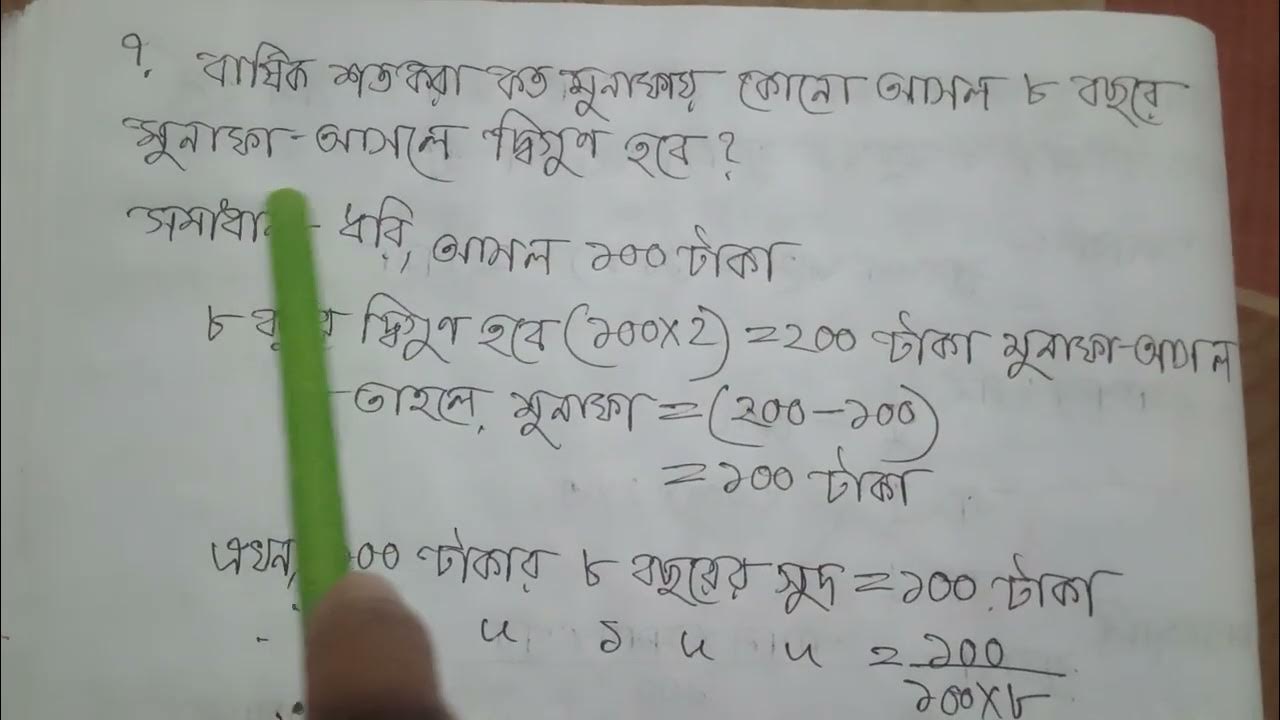 ৭. বার্ষিক শতকরা কত মুনাফায় কোনো আসল ৮ বছরে
মুনাফা-আসলে দ্বিগুণ হবে?
ধরি, আসল ১০০ টাকা
৮ দ্বিগুণ হবে (১০০×২) =২০০ টাকা মুনাফা-আসল
তাহলে, মুনাফা = (২০০-১০০)
= ১০০ টাকা
এখন, টাকার ৮ বছরের সুদ = ১০০ টাকা
" ১ " " = ১০০
১০০×৮